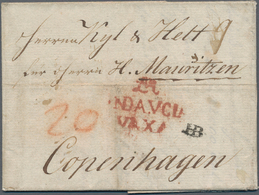 Herren Kyl & Hett
der Herrn H. Mauritzen
R
20
NDAVCL
VAXA
B
Copenhagen